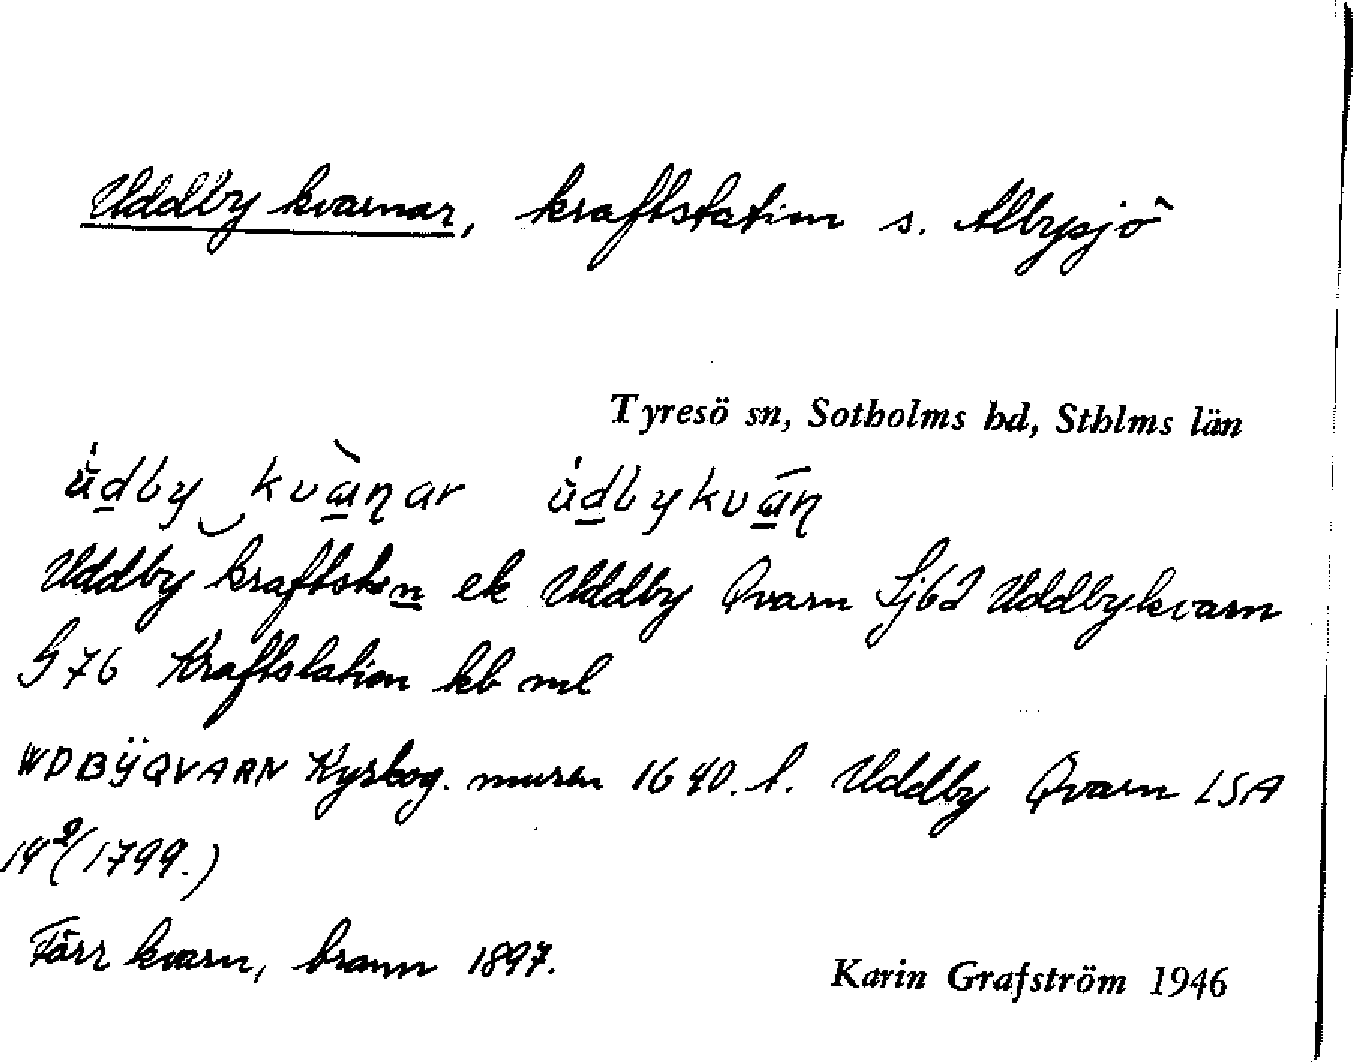 Uddby kvarnar, kraftstation s. Albysjö
Tyresö sn, Sotholms hd, Sthlms län
Uddby kraftstn ek Uddby Qvarn Sj62 Uddbykvarn
G 76 Kraftstation kb ml
WDBŸQVARN Kyrkog. muren 1640. l. Uddby Qvarn LSA
14²(1799.)
Förr kvarn, brann 1897.
Karin Grafström 1946